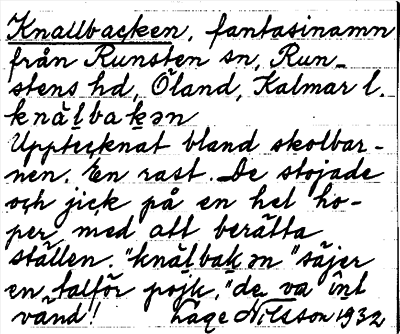 Knallbacken, fantasinamn
från Runsten sn, Run-
stens hd, Öland, Kalmar l.
knälbakən
Upptecknat bland skolbar-
nen. En rast. De stojade
och jick på en hel ho-
per med att berätta
ställen. "knälbakən" säjer
en talför pojk, "de va int
vänd"! Lage Nilsson 1932